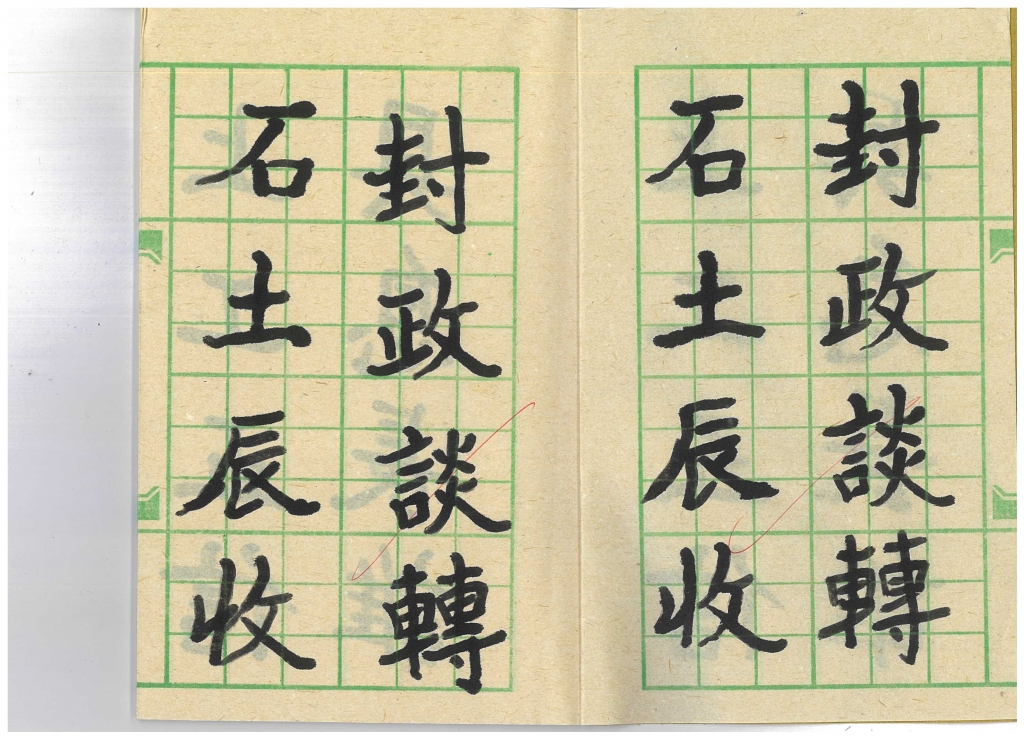 封政談轉
石土辰收
封政談轉
石土辰收